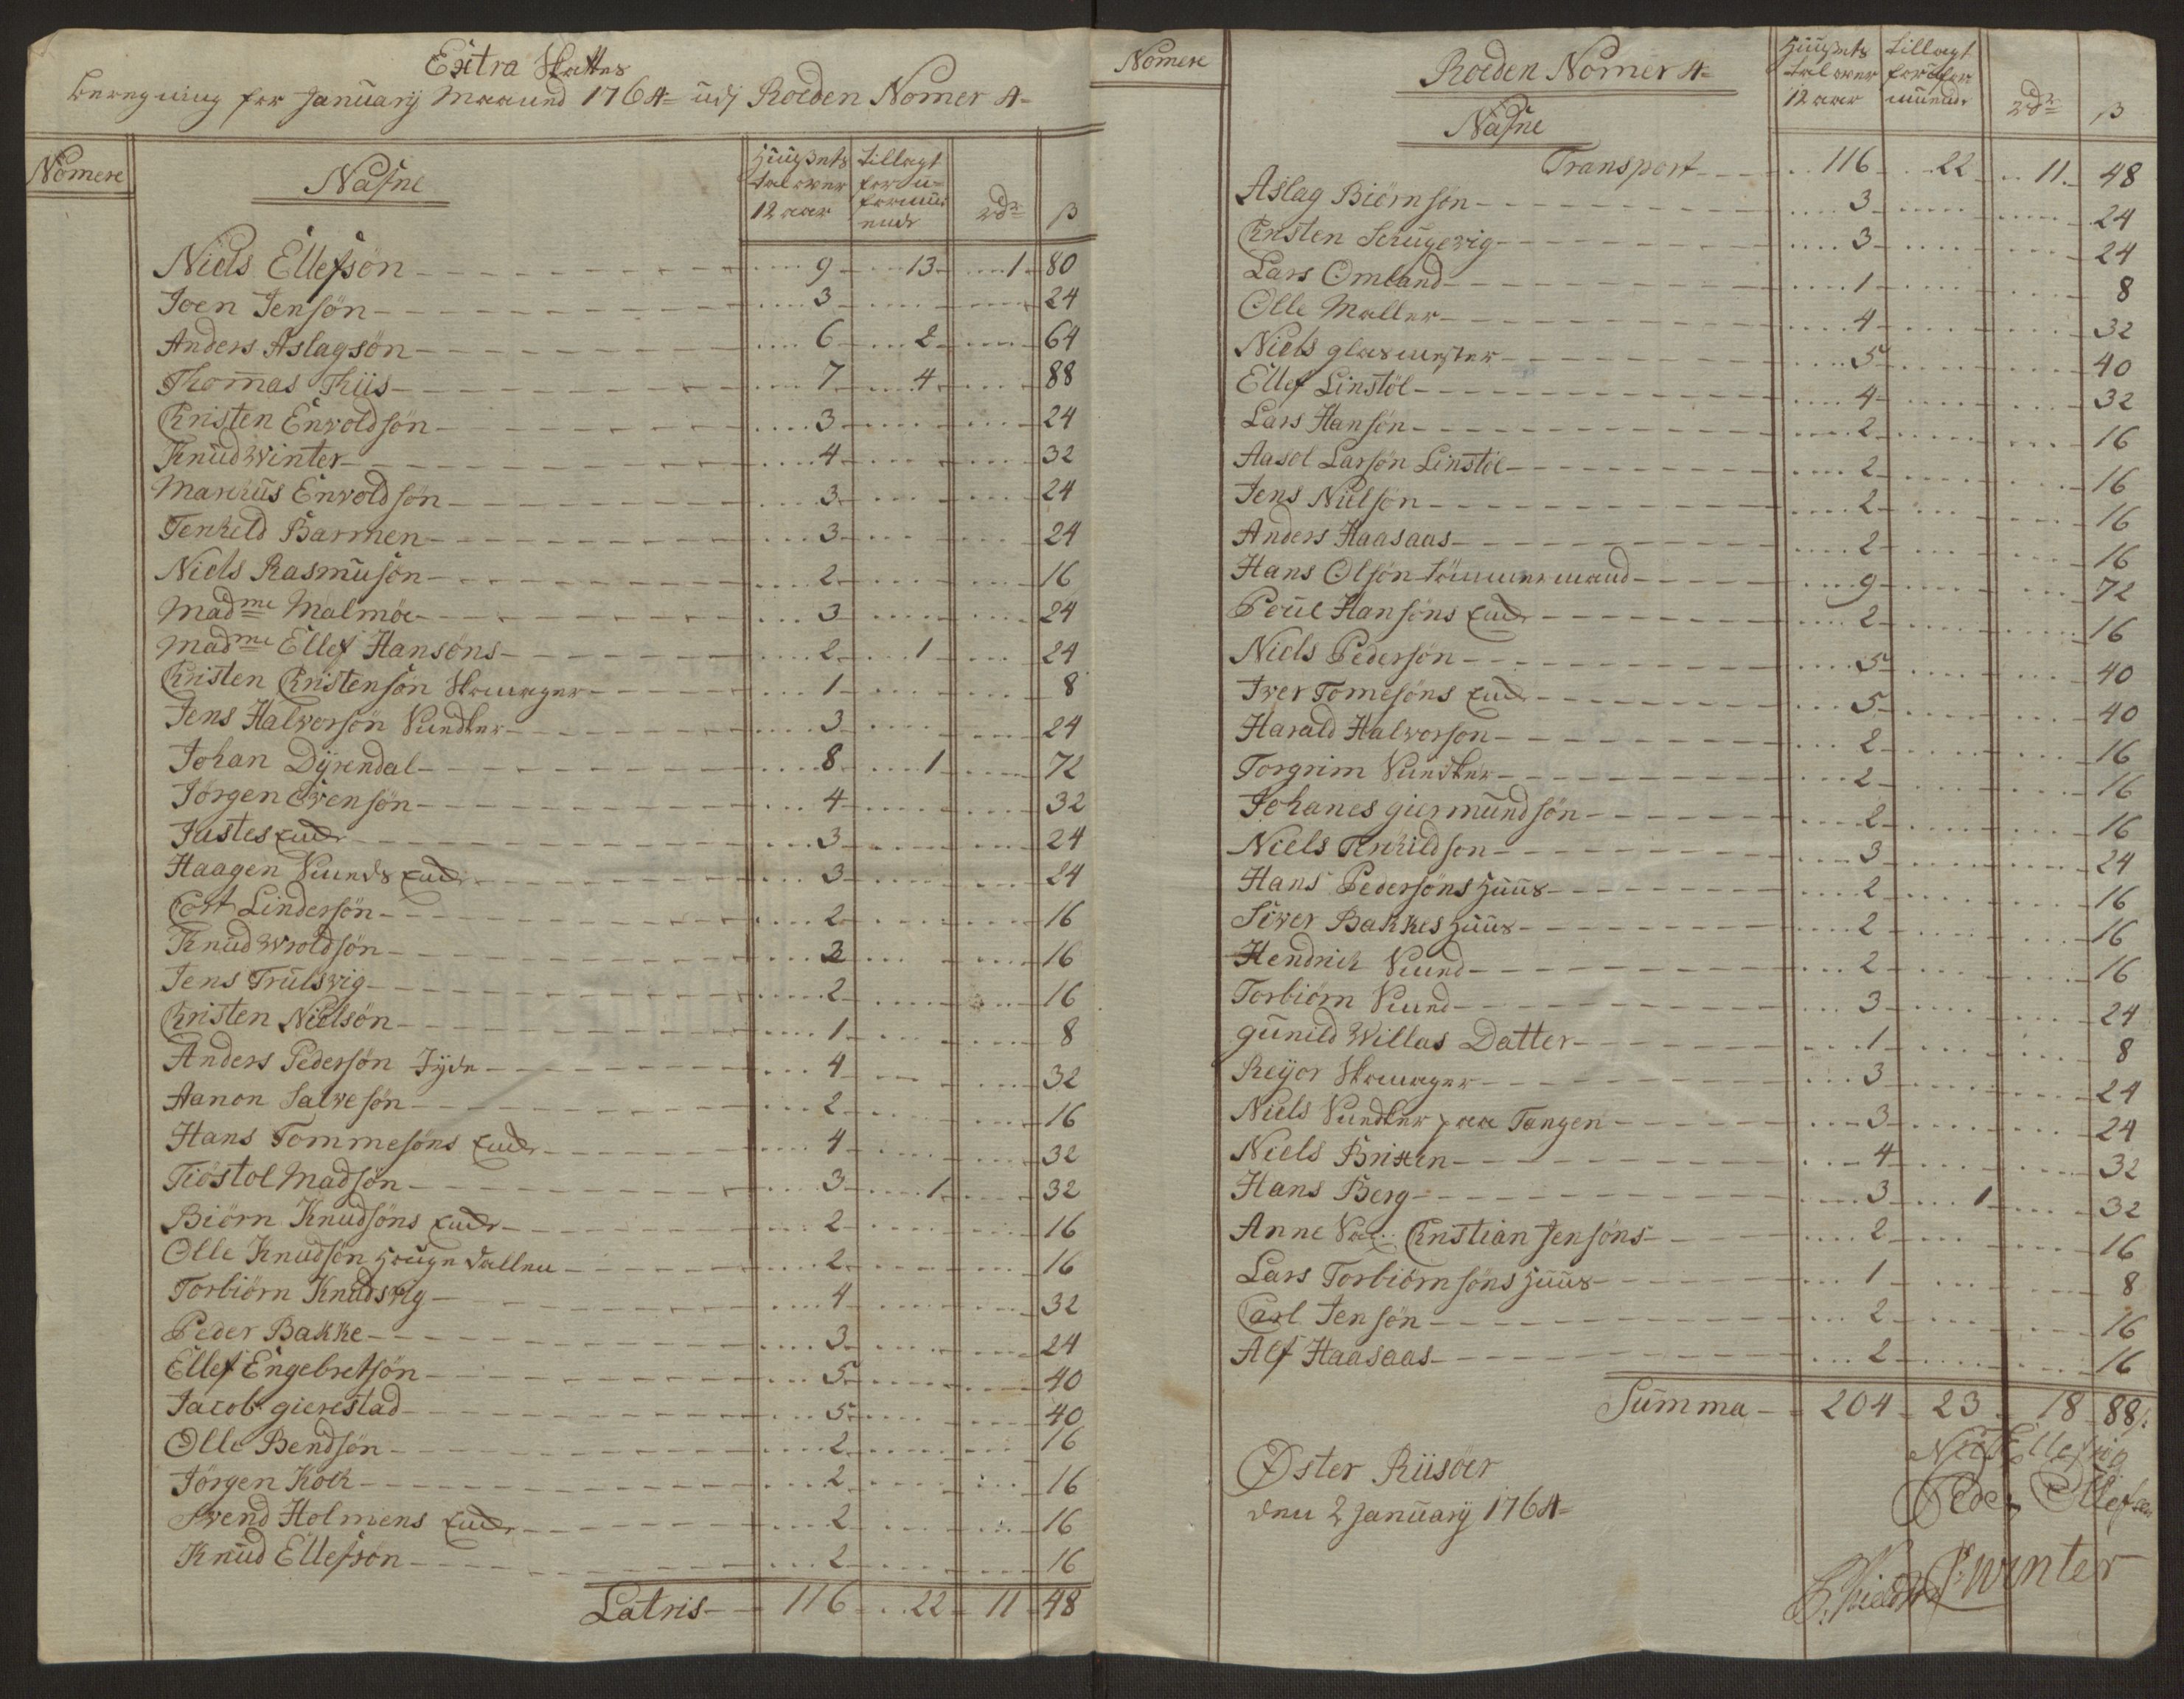 Extra Skattes
beregning for Januarij Maaned 1764 udj Roeden Nomer 4
Nomere Nafne Huusets tal over 12 aar tillagt for u= formu ende rdr ß
Niels Ellefsön 9 13 1 80
Joen Jensön 3 24
Anders Aslagsön 6 2 64
Thomas Thiis 7 4 88
Christen Envoldsön 3 24
Knud Winter 4 32
Marcus Envoldsön 3 24
Terkeld Barmen 3 24
Niels Rasmusön 2 16
Madme Malmöe 3 24
Madme Ellef Hansöns 2 1 24
Christen Christensön Skomager 1 8
Jens Halvorsön 3 24
Johan Dÿrendal 8 1 72
Jörgen Ovensön 4 32
Justes Enke 3 24
Haagen Enke 3 24
Cort Lindersön 2 16
Knud Wroldsön 2 16
Jens Trulsvig 2 16
Christen Nielsön 1 8
Anders Pedersön Jÿde 4 32
Aanon Salvesön 2 16
Hans Tommesöns Enke 4 32
Tiöstol Madsön 3 1 32
Biörn Knudsöns Enke 2 16
Olle Knudsön 2 16
Torbiörn Knudsvig 4 32
Peder Bakke 3 24
Ellef Engebretsön 5 40
Jacob gierestad 5 40
Olle Bendsön 2 16
Jörgen Koch 2 16
Svend Holmens Enke 2 16
Knud Ellefsön 2 16
Latris 116 22 11 48
Nomere Roeden Nomer 4 Huusets tal over 12 aar tillagt for ufor muende rdr ß
Nafne
Transport 116 22 11 48
Aslag Biörnsön 3 24
Christen Schugevig 3 24
Lars Omland 1 8
Olle Maller 4 32
Niels glasmester 5 40
Ellef Linstöl 4 32
Lars Hansön 2 16
Aasol Larsön Linstöl 2 16
Jens Nielsön 2 16
Anders Haasaas 2 16
Hans Olsön tömmermand 9 72
Poul Hansöns Enke 2 16
Niels Pedersön 5 40
Iver Tomesöns Enke 5 40
Harald Halvorson 2 16
Torgrim 2 16
Johanes giermundsön 2 16
Niels Terkildsen 3 24
Hans Pedersöns Huus 2 16
Siver Bakkes Huus 2 16
Hendrich 2 16
Torbiörn 3 24
gunild Willas Datter 1 8
Reÿor Skomager 3 24
Niels paa Tangen 3 24
Niels Brixen 4 32
Hans Berg 3 1 32
Anne Christian Jensöns 2 16
Lars Torbiörnsöns Huus 1 8
Carl Jensön 2 16
Alf Haasaas 2 16
Summa 204 23 18 88
Øster Riisöer
den 2 Januarij 1764
Peder Ellefsen
Winter